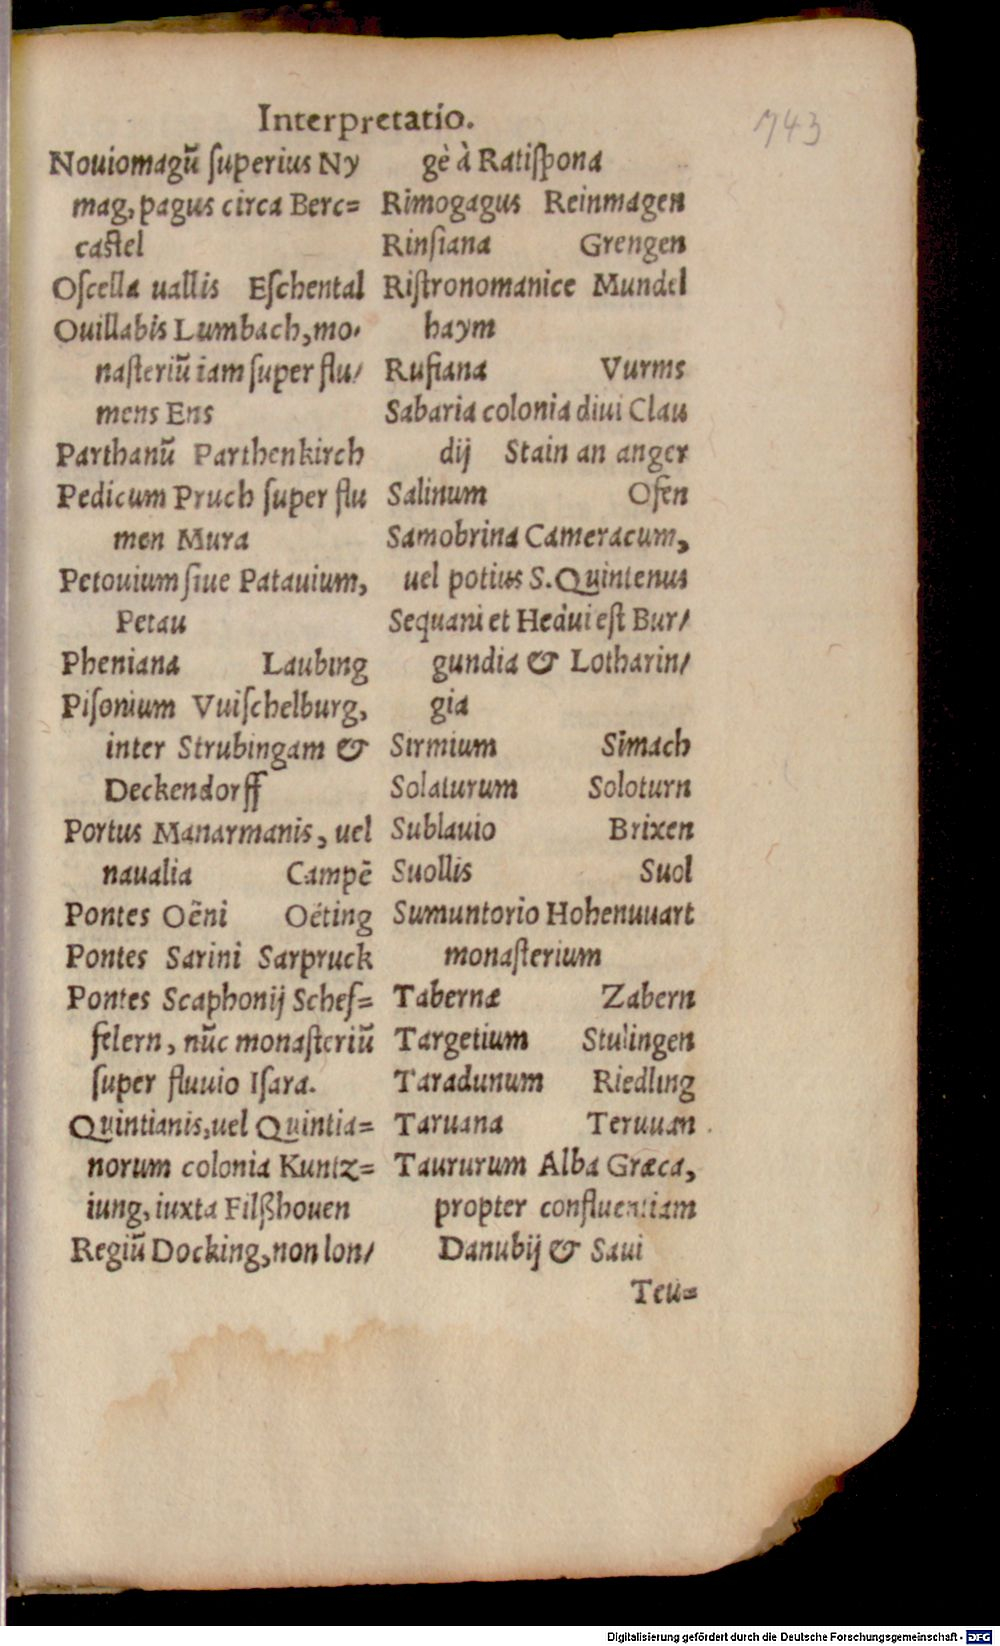 Interpretatio.
743
Nouiomagū ſuperius Ny
mag, pagus circa Berc=
caſtel
Oſcella uallis Eſchental
Ouillabis Lumbach, mo/
naſteriū iam ſuper flu/
mens Ens
Parthanū Parthenkirch
Pedicum Pruch ſuper flu
men Mura
Petouium ſiue Patauium,
Petau
Pheniana Laubing
Piſonium Vuiſchelburg,
inter Strubingam &
Deckendorff
Portus Manarmanis, uel
naualia Campē
Pontes Oëni Oëting
Pontes Sarini Sarpruck
Pontes Scaphonij Schef=
felern, nūc monaſteriū
ſuper fluuio Iſara.
Quintianis, uel Quintia=
norum colonia Kuntz=
iung, iuxta Filßhouen
Regiū Docking, non lon/
gè à Ratiſpona
Rimogagus Reinmagen
Rinſiana Grengen
Riſtronomanice Mundel
haym
Rufiana Vurms
Sabaria colonia diui Clau
dij Stain an anger
Salinum Ofen
Samobrina Cameracum,
uel potius S. Quintenus
Sequani et Hedui eſt Bur/
gundia & Lotharin/
gia
Sirmium Simach
Solaturum Soloturn
Sublauio Brixen
Suollis Suol
Sumuntorio Hohenuuart
monaſterium
Tabernæ Zabern
Targetium Stulingen
Taradunum Riedling
Taruana Teruuan
Taururum Alba Græca,
propter confluentiam
Danubij & Saui
Teu=
Digitalisierung gefördert durch die Deutsche Forschungsgemeinschaft - DFG